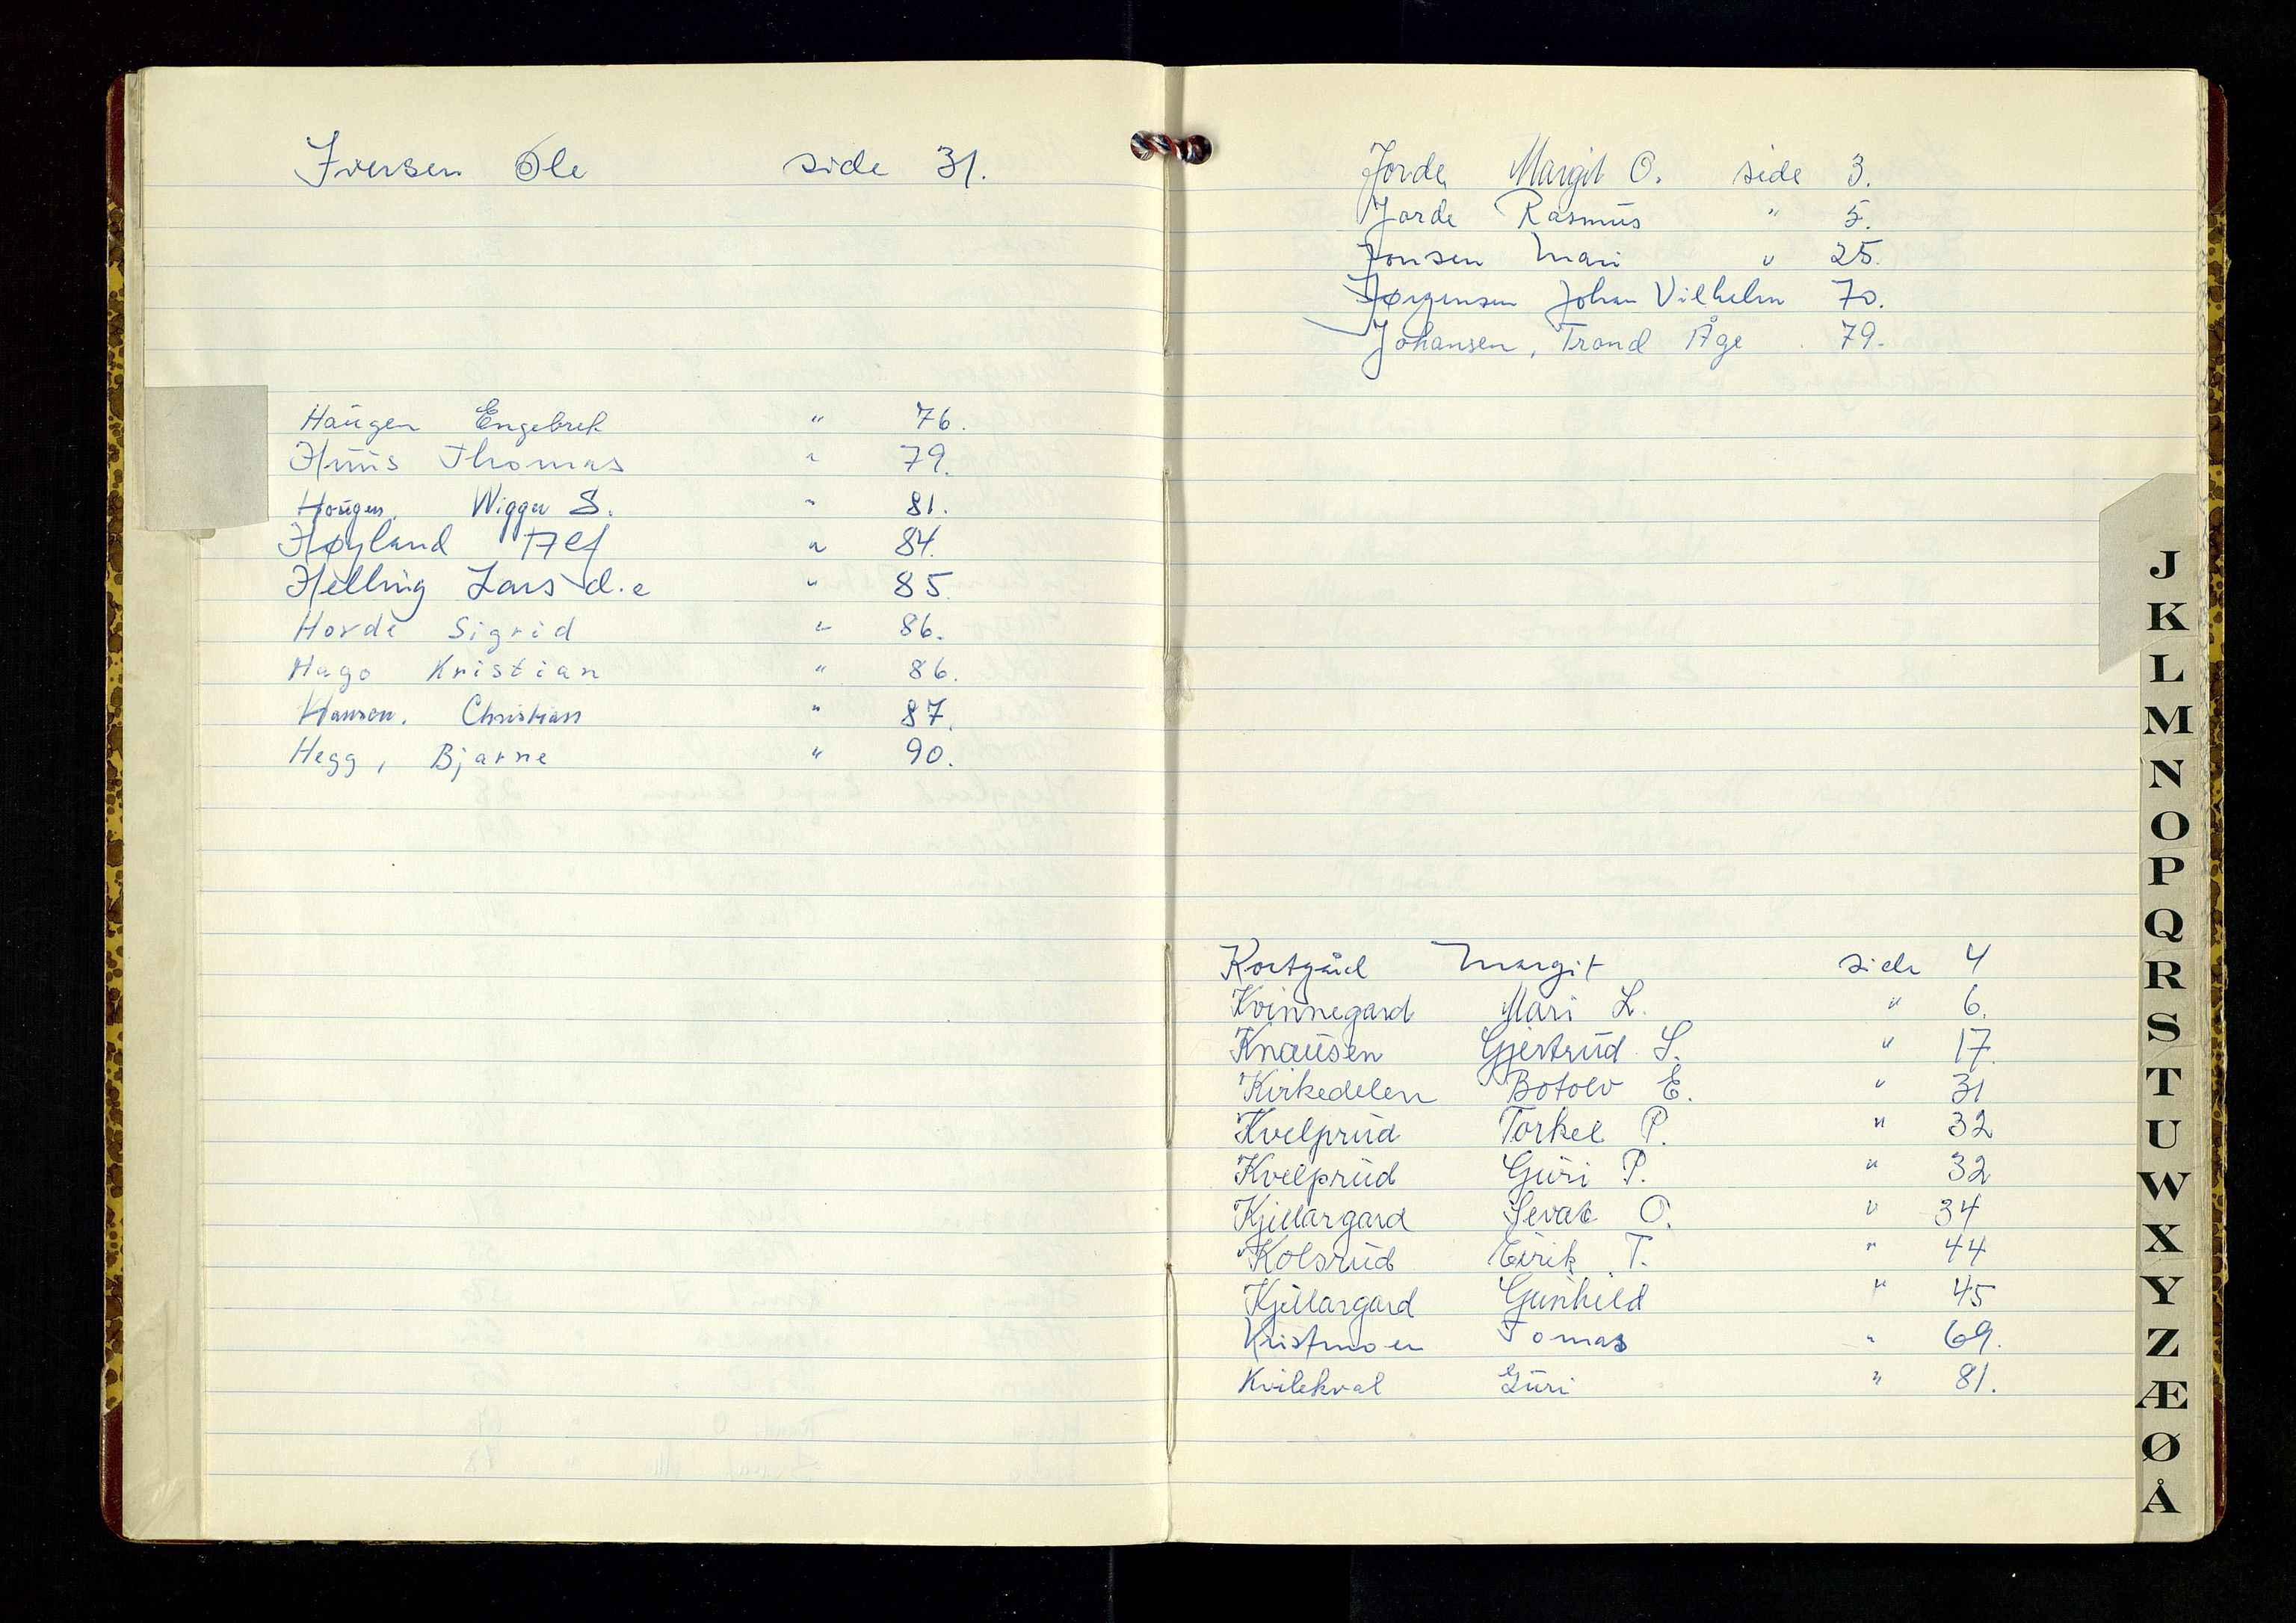 Iversen Ole side 31.
Haugen Engebret " 76.
Huus Thomas " 79.
Hougen, Wigger S. " 81.
Høyland Alf " 84.
Helling Lars d.e " 85.
Hovde Sigrid " 86.
Hago Kristian " 86.
Hanson, Christian " 87.
Hegg, Bjarne " 90.
Jorde, Margit O. side 3.
Jorde Rasmus " 5.
Jonsen Mari " 25.
Jørgensen Johan Vilhelm 70.
Johansen, Trond Åge 79.
Kortgård Margit side 4
Kvinnegard Mari L. " 6.
Knausen Gjertrud S. " 17.
Kirkedelen Botolv E. " 31
Kvelprud Torkel P. " 32
Kvelprud Guri P. " 32
Kjellargard Sevat O. " 34
Kolsrud Eirik T. " 44
Kjellargard Gunhild " 45
Kristmoen Tomas " 69.
Kvilekval Guri " 81.
J
K
L
M
N
O
P
Q
R
S
T
U
W
X
Y
Z
Æ
Ø
Å